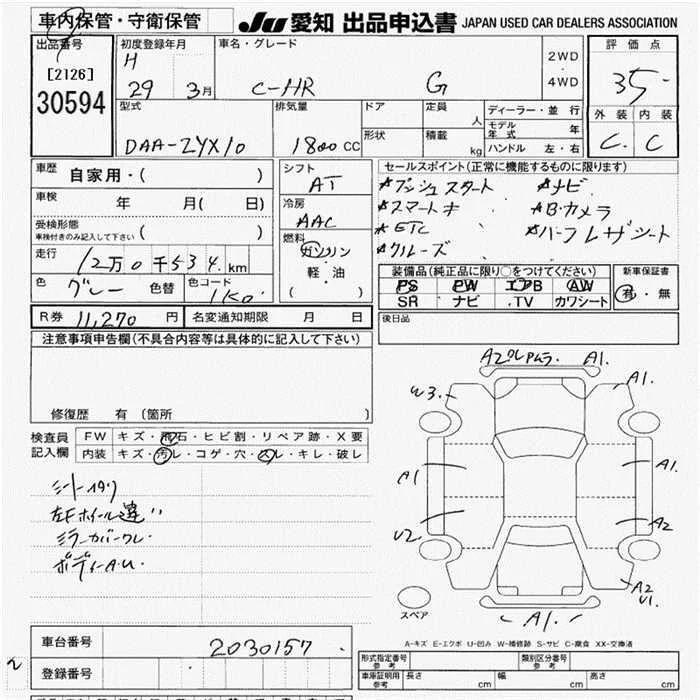 車内保管・守衛保管 JU 愛知 出品申込書 JAPAN USED CAR DEALERS ASSOCIATION
出品番号 初度登録年月 車名・グレード 2WD・4WD 評価点
[2126] H
30594 29 3月 C-HR G 35
外装 内装
C. C
型式 排気量 ドア 定員 人 ディーラー・並行
モデル年式 年
形状 積載 kg ハンドル 左・右
DAA-ZYX10 1800 CC
車歴 自家用・( ) シフト AT セールスポイント(正常に機能するものに限ります)
車検 年 月( 日) 冷房 AAC
*プッシュスタート *ナビ
*スマートキ *B・カメラ
*ETC *ハーフレザシート
*クルーズ
受検形態 ( )
車検付きのみ記入して下さい
燃料 ガソリン
軽・油
( )
走行 12万0千534km
色 グレー 色替 色コード 1K0
装備品(純正品に限り○をつけてください) 新車保証書
PS PW エアB AW 有・無
SR ナビ TV カワシート
R券 11,270円 名変通知期限 月 日 後日品
注意事項申告欄(不具合内容等は具体的に記入して下さい)
修復歴 有 (箇所 )
検査員記入欄 FW キズ・飛石・ヒビ割・リペア跡・X要
内装 キズ・汚レ・コゲ・穴・スレ・キレ・破レ
左Fホイール違い
ミラーカバーワレ
ボディーA.U.
A2 ワレ A1.
W3. A1.
A1 A1
U2. A2
A2
U1.
A1.
スペア
A-キズ E-エクボ U-凹み W-補修跡 S-サビ C-腐食 XX-交換済
車台番号 2030157
登録番号
形式指定番号 参考 類別区分番号 参考
車庫証明用 参考 長さ cm 幅 cm 高さ cm